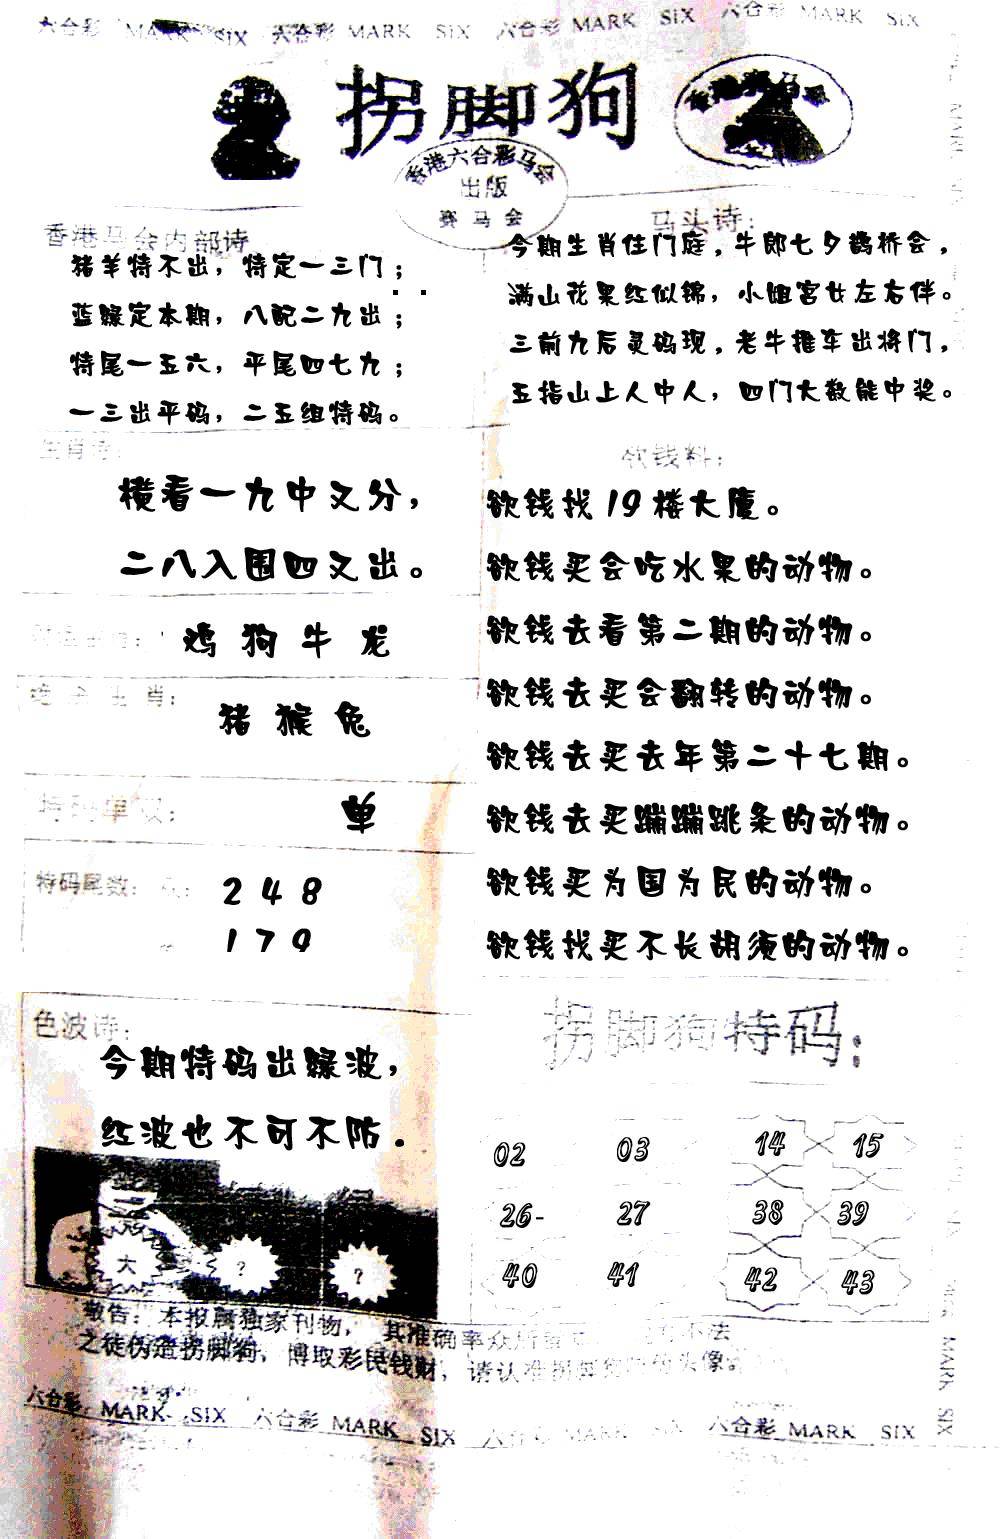 六合彩 MARK SIX 六合彩 MARK SIX 六合彩 MARK SIX 六合彩 MARK SIX
拐脚狗
香港六合彩马会
出版
赛马会
香港马会内部诗
猪羊特不出，特定一三门；
蓝绿定本期，八配二九出；
特尾一五六，平尾四七九；
一三出平码，二五组特码。
马头诗：
今期生肖住门庭，牛郎七夕鹊桥会，
满山花果红似锦，小姐宫女左右伴。
三前九后灵码现，老牛推车出将门，
五指山上人中人，四门大数能中奖。
生肖诗：
横看一九中又分，
二八入围四又出。
鸡 狗 牛 龙
生肖：
猪 猴 兔
特码单双：
单
特码尾数：
2 4 8
1 7 9
欲钱料：
欲钱找19楼大厦。
欲钱买会吃水果的动物。
欲钱去看第二期的动物。
欲钱去买会翻转的动物。
欲钱去买去年第二十七期。
欲钱去买蹦蹦跳条的动物。
欲钱买为国为民的动物。
欲钱找买不长胡须的动物。
色波诗：
今期特码出绿波，
红波也不可不防．
大 ? ?
拐脚狗特码：
02 03 14 15
26- 27 38 39
40 41 42 43
敬告：本报属独家刊物，其准确率众所 不法
之徒伪造拐脚狗，博取彩民钱财，请认准拐脚 头像
六合彩 MARK SIX 六合彩 MARK SIX 六合彩 MARK SIX 六合彩 MARK SIX
MARK SIX